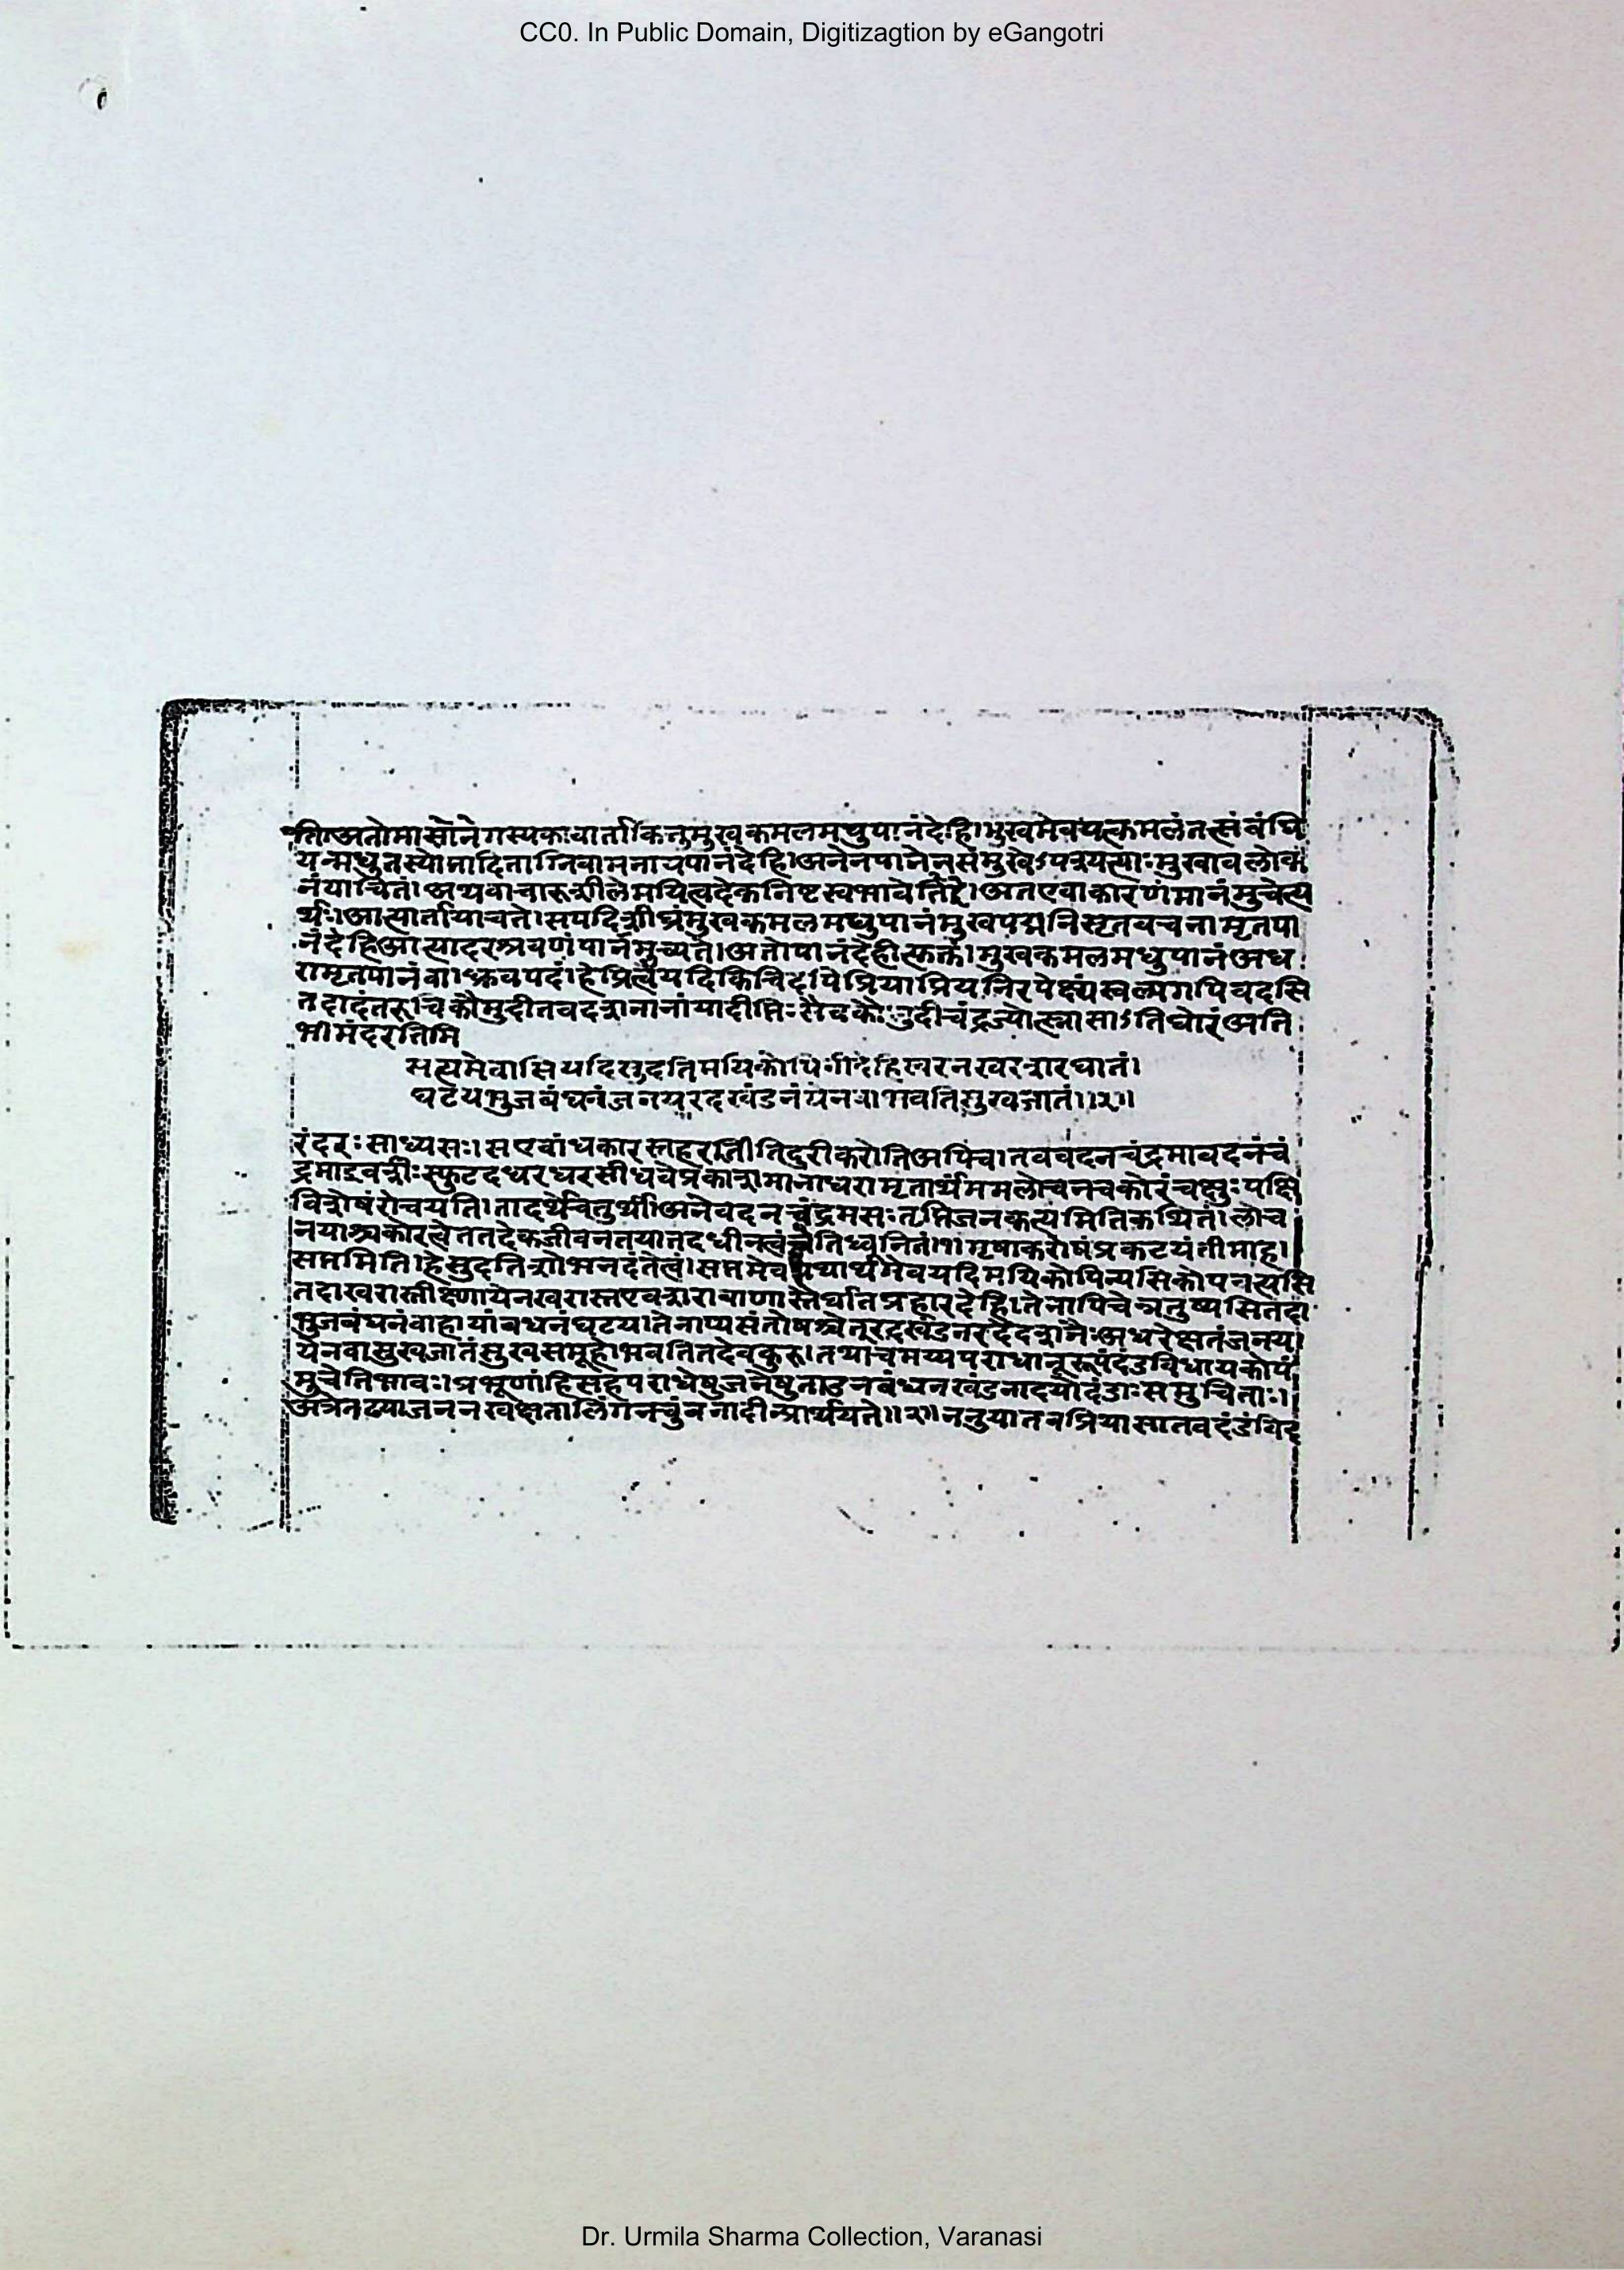 CC0. In Public Domain, Digitizagtion by eGangotri
तिं।अतोमासोनेगस्यकावार्ताकिनुमुखकमलमधुपानंदेहि।मुखमेवयत्कमलंतत्संबंधि
यन्मधुतस्योमादिताग्निवामनायपानंदेहि।अनेनपानेनसंमुखेऽपत्रयत्याःमुखावलोक
नंयाचितं।अथवाचारूशीलेमयित्वदेकनिष्टस्वभावेतिहे।अतएवाकारणंमानंमुंचेत्य
र्थः।आत्यार्तायाचते।सपदिशीघ्रंमुखकमलमधुपानंमुखपद्मनिसृतवचनामृतपा
नंदेहिआत्यादरश्रवणंपानमुच्यते।अतोपानंदेहीत्युक्तं।मुखकमलमधुपानंअध
रामृतपानंवा।ध्रुवपदं।हेप्रियेत्वंयदिकिंचिदपिप्रियाप्रियनिरपेक्ष्यंस्वल्पमपिवदसि
तदादंतरूचिकौमुदीतवदशनानांयादीप्तिःसैवकौमुदीचंद्रज्योत्स्नासाऽतिघोरंअति
भीमंदरतिमि
सत्यमेवासियदिसुदतिमयिकोपिनीदेहिखरनखरशरघातं।
घटयभुजबंधनंजनयरदखंडनंयेनवाभवतिसुखजातं।।२।।
रंदरःसाध्यसः।सएवांधकारस्तहरतीतिदुरीकरोतिअपिच।तववदनचंद्रमावदनंचं
द्रमाइवश्रीःस्फुटदधरधरसीधवेप्रकाशमानाधरामृतार्थममलोचनचकोरंचक्षुःपक्षि
विशेषंरोचयति।तादर्थेचतुर्थी।अनेवदनचंद्रमसःतृप्तिजनकत्यमितिकथितं।लोच
नयाश्चकोरत्वेततदेकजीवनतयातदधीनत्वंचेतिध्वनितं।१।मृषाकरोषंप्रकटयंतीमाह।
सप्तमिति।हेसुदतिशोभनदंतेत्वं।सप्तमेवयथार्थमेवयदिमयिकोपिन्यसिकोपवत्यसि
तदाखरास्तीक्ष्णायेनखरास्तएवशराबाणास्तैर्घातप्रहारंदेहि।तेनापिचेन्नतुष्यसितदा
भुजबंधनंवाहायांबधनंघटय।तेनाप्यसंतोषश्चेतूरदखंडनंरदैदशनैःअधरेक्षतंजनय।
येनवासुखजातंसुखसमूहोभवतितदेवकुरु।तथाचमय्यपराधानूरूपंदंडविधायकोपं
मुचेतिभावः।प्रभूणांहिसहपराधेषुजनेषुताडनबंधनखंडनादयोदंडाःसमुचिताः।
अत्रेनढयाजननखक्षतालिंगनचुंबनादीन्प्रार्थयते।।२।।ननुयातवप्रियासातवदंडंविद
Dr. Urmila Sharma Collection, Varanasi